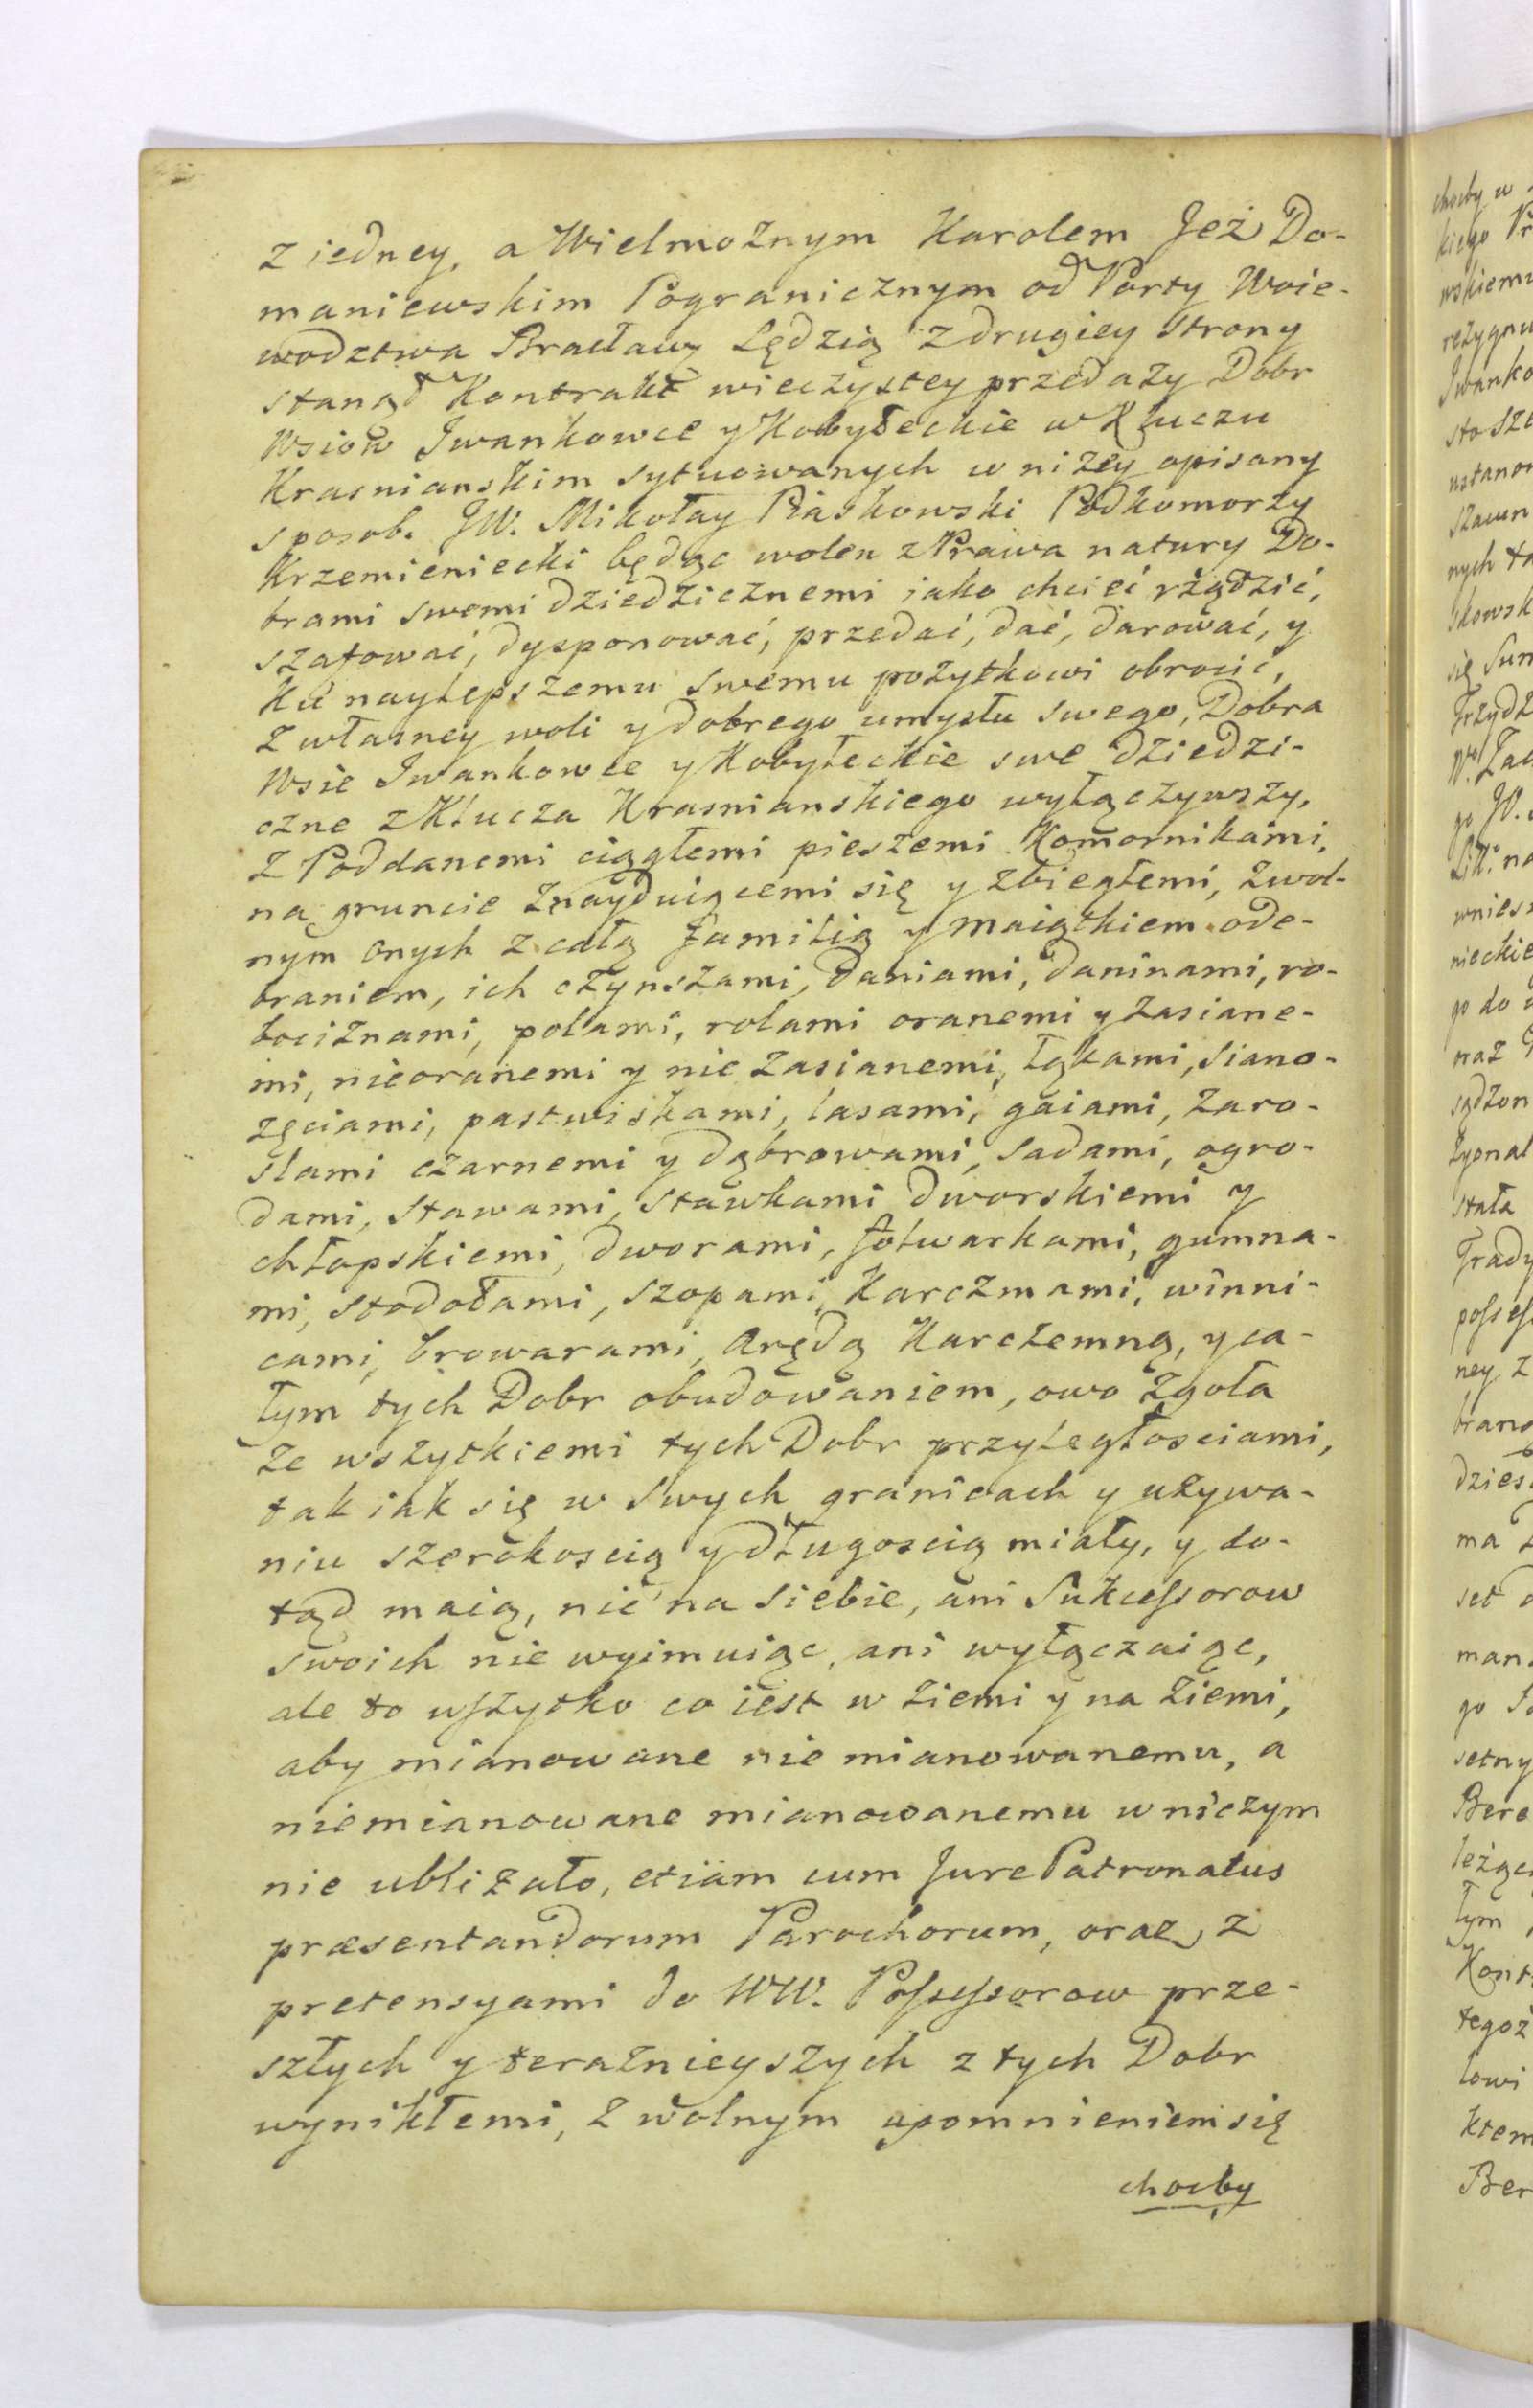 z iedney, a Wielmożnym Karolem Jeż Do-
maniewskim Pogranicznym od Porty Woie-
wodztwa Bracławꝫ Sędzią z drugiey strony
stanął Kontrakt wieczystey przedaży Dobr
Wsiow Iwankowce y Kobyłeckie w Kluczu
Krasnianskim sytuowanych w niżey opisany
sposob. JW. Mikołay Piaskowski Podkomorzy
Krzemieniecki będąc wolen z Prawa natury Do-
brami swemi dziedzicznemi iako chcieć rządzić,
szafować, dysponować, przedać, dać, darować, y
Ku naylepszemu swemu pożytkowi obrocić,
z własney woli y dobrego umysłu swego, Dobra
Wsie Iwankowce y Kobyłeckie swe dziedzi-
czne z Klucza Krasnianskiego wyłączywszy,
z Poddanemi ciągłemi pieszemi Komornikami,
na gruncie znayduiącemi się y zbiegłemi, z wol-
nym onych z całą Familią y maiątkiem ode-
braniem, ich czynszami, daniami, daninami, ro-
bociznami, polami, rolami oranemi y zasiane-
mi, nieoranemi y nie zasianemi, łąkami, siano-
żęciami, pastwiskami, lasami, gaiami, zaro-
slami czarnemi y dąbrowami, sadami, ogro-
dami, stawami, stawkami dworskiemi y
chłopskiemi, dworami, folwarkami, gumna-
mi, stodołami, szopami, Karczmami, winni-
cami, browarami, Arędą Karczemną, y ca-
łym tych Dobr obudowaniem, owo zgoła
ze wszytkiemi tych Dobr przyległosciami,
tak iak się w swych granicach y używa-
niu szerokoscią y długoscią miały, y do-
tąd maią, nic na siebie, ani Sukcessorow
swoich nie wyimuiąc, ani wyłączaiąc,
ale to wszytko co iest w ziemi y na ziemi,
aby mianowane nie mianowanemu, a
niemianowane mianowanemu w niczym
nie ubliżało, etiam cum Jure Patronatus
præsentandorum Parochorum, oraz z
pretensyami do WW. Possessorow prze-
szłych y teraźnieyszych z tych Dobr
wynikłemi, z wolnym upomnieniem się
choćby